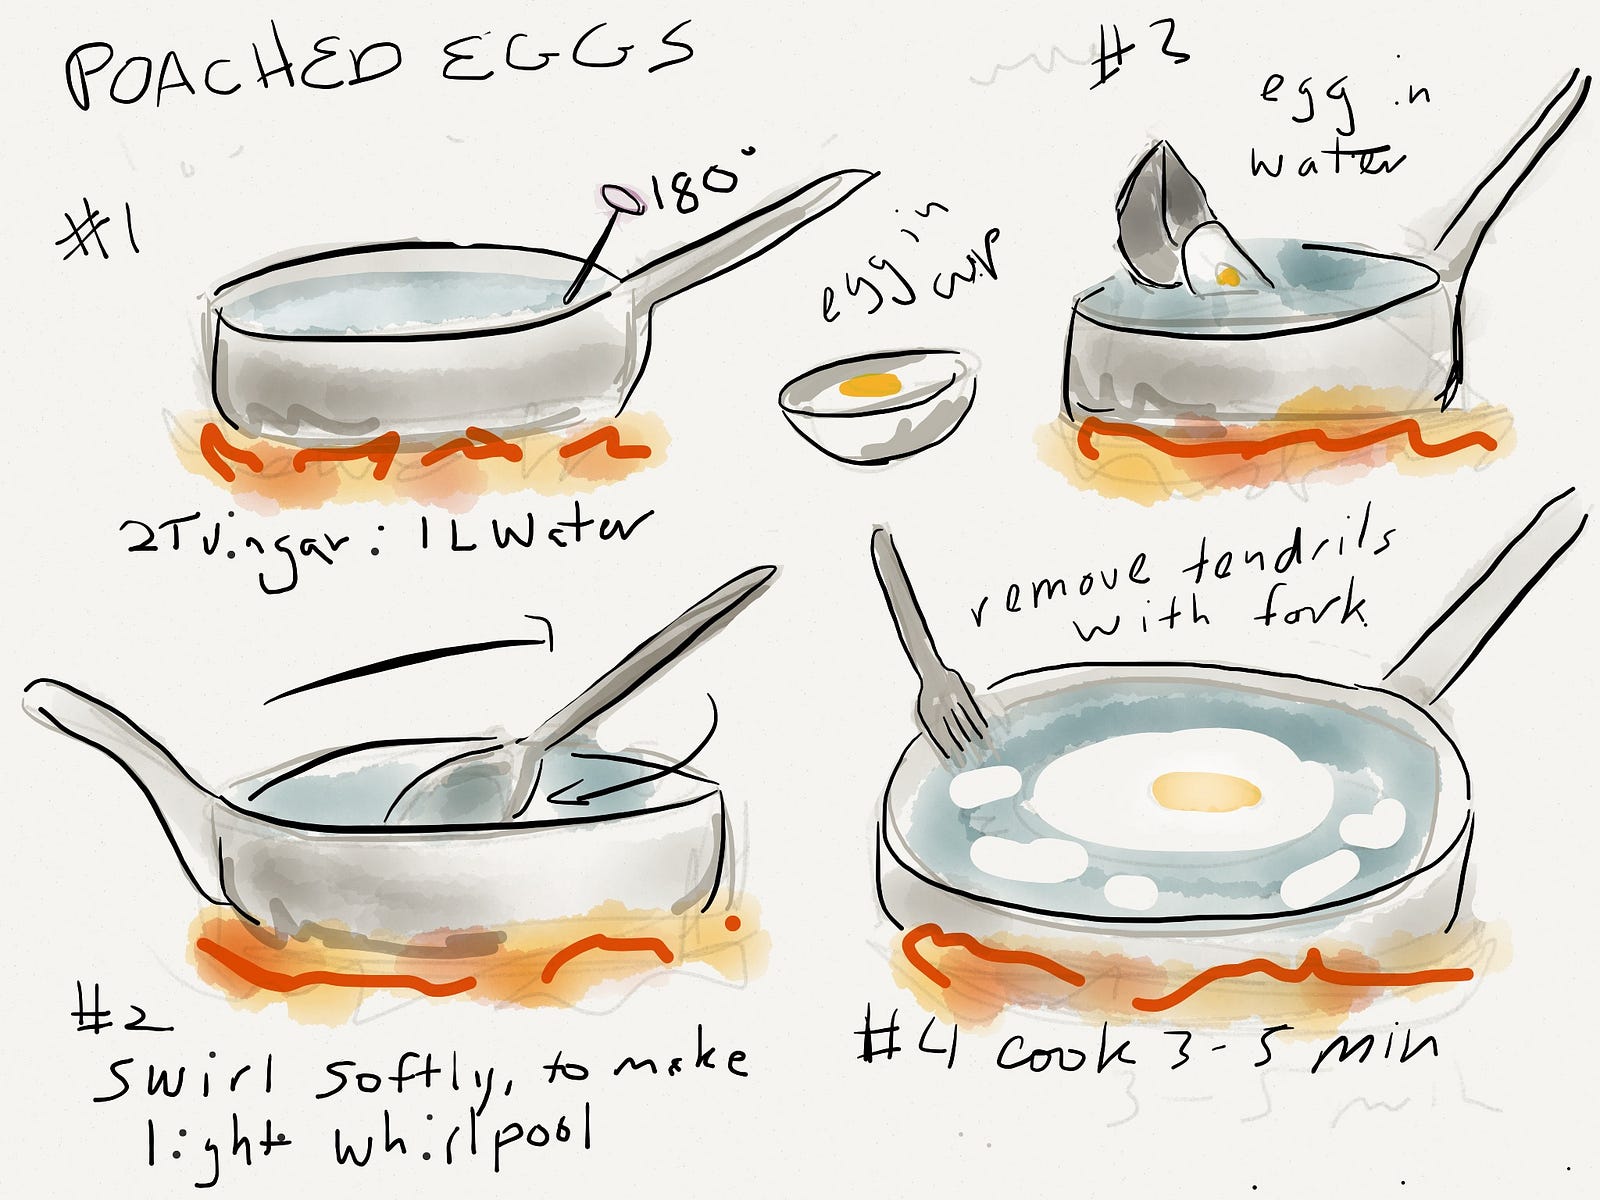 POACHED EGGS
#1
180°
2T vingar : 1L Water
#2
swirl softly, to make
light whirlpool
egg in
cup
#3
egg in
water
remove tendrils
with fork
#4 cook 3-5 min
3-5 min